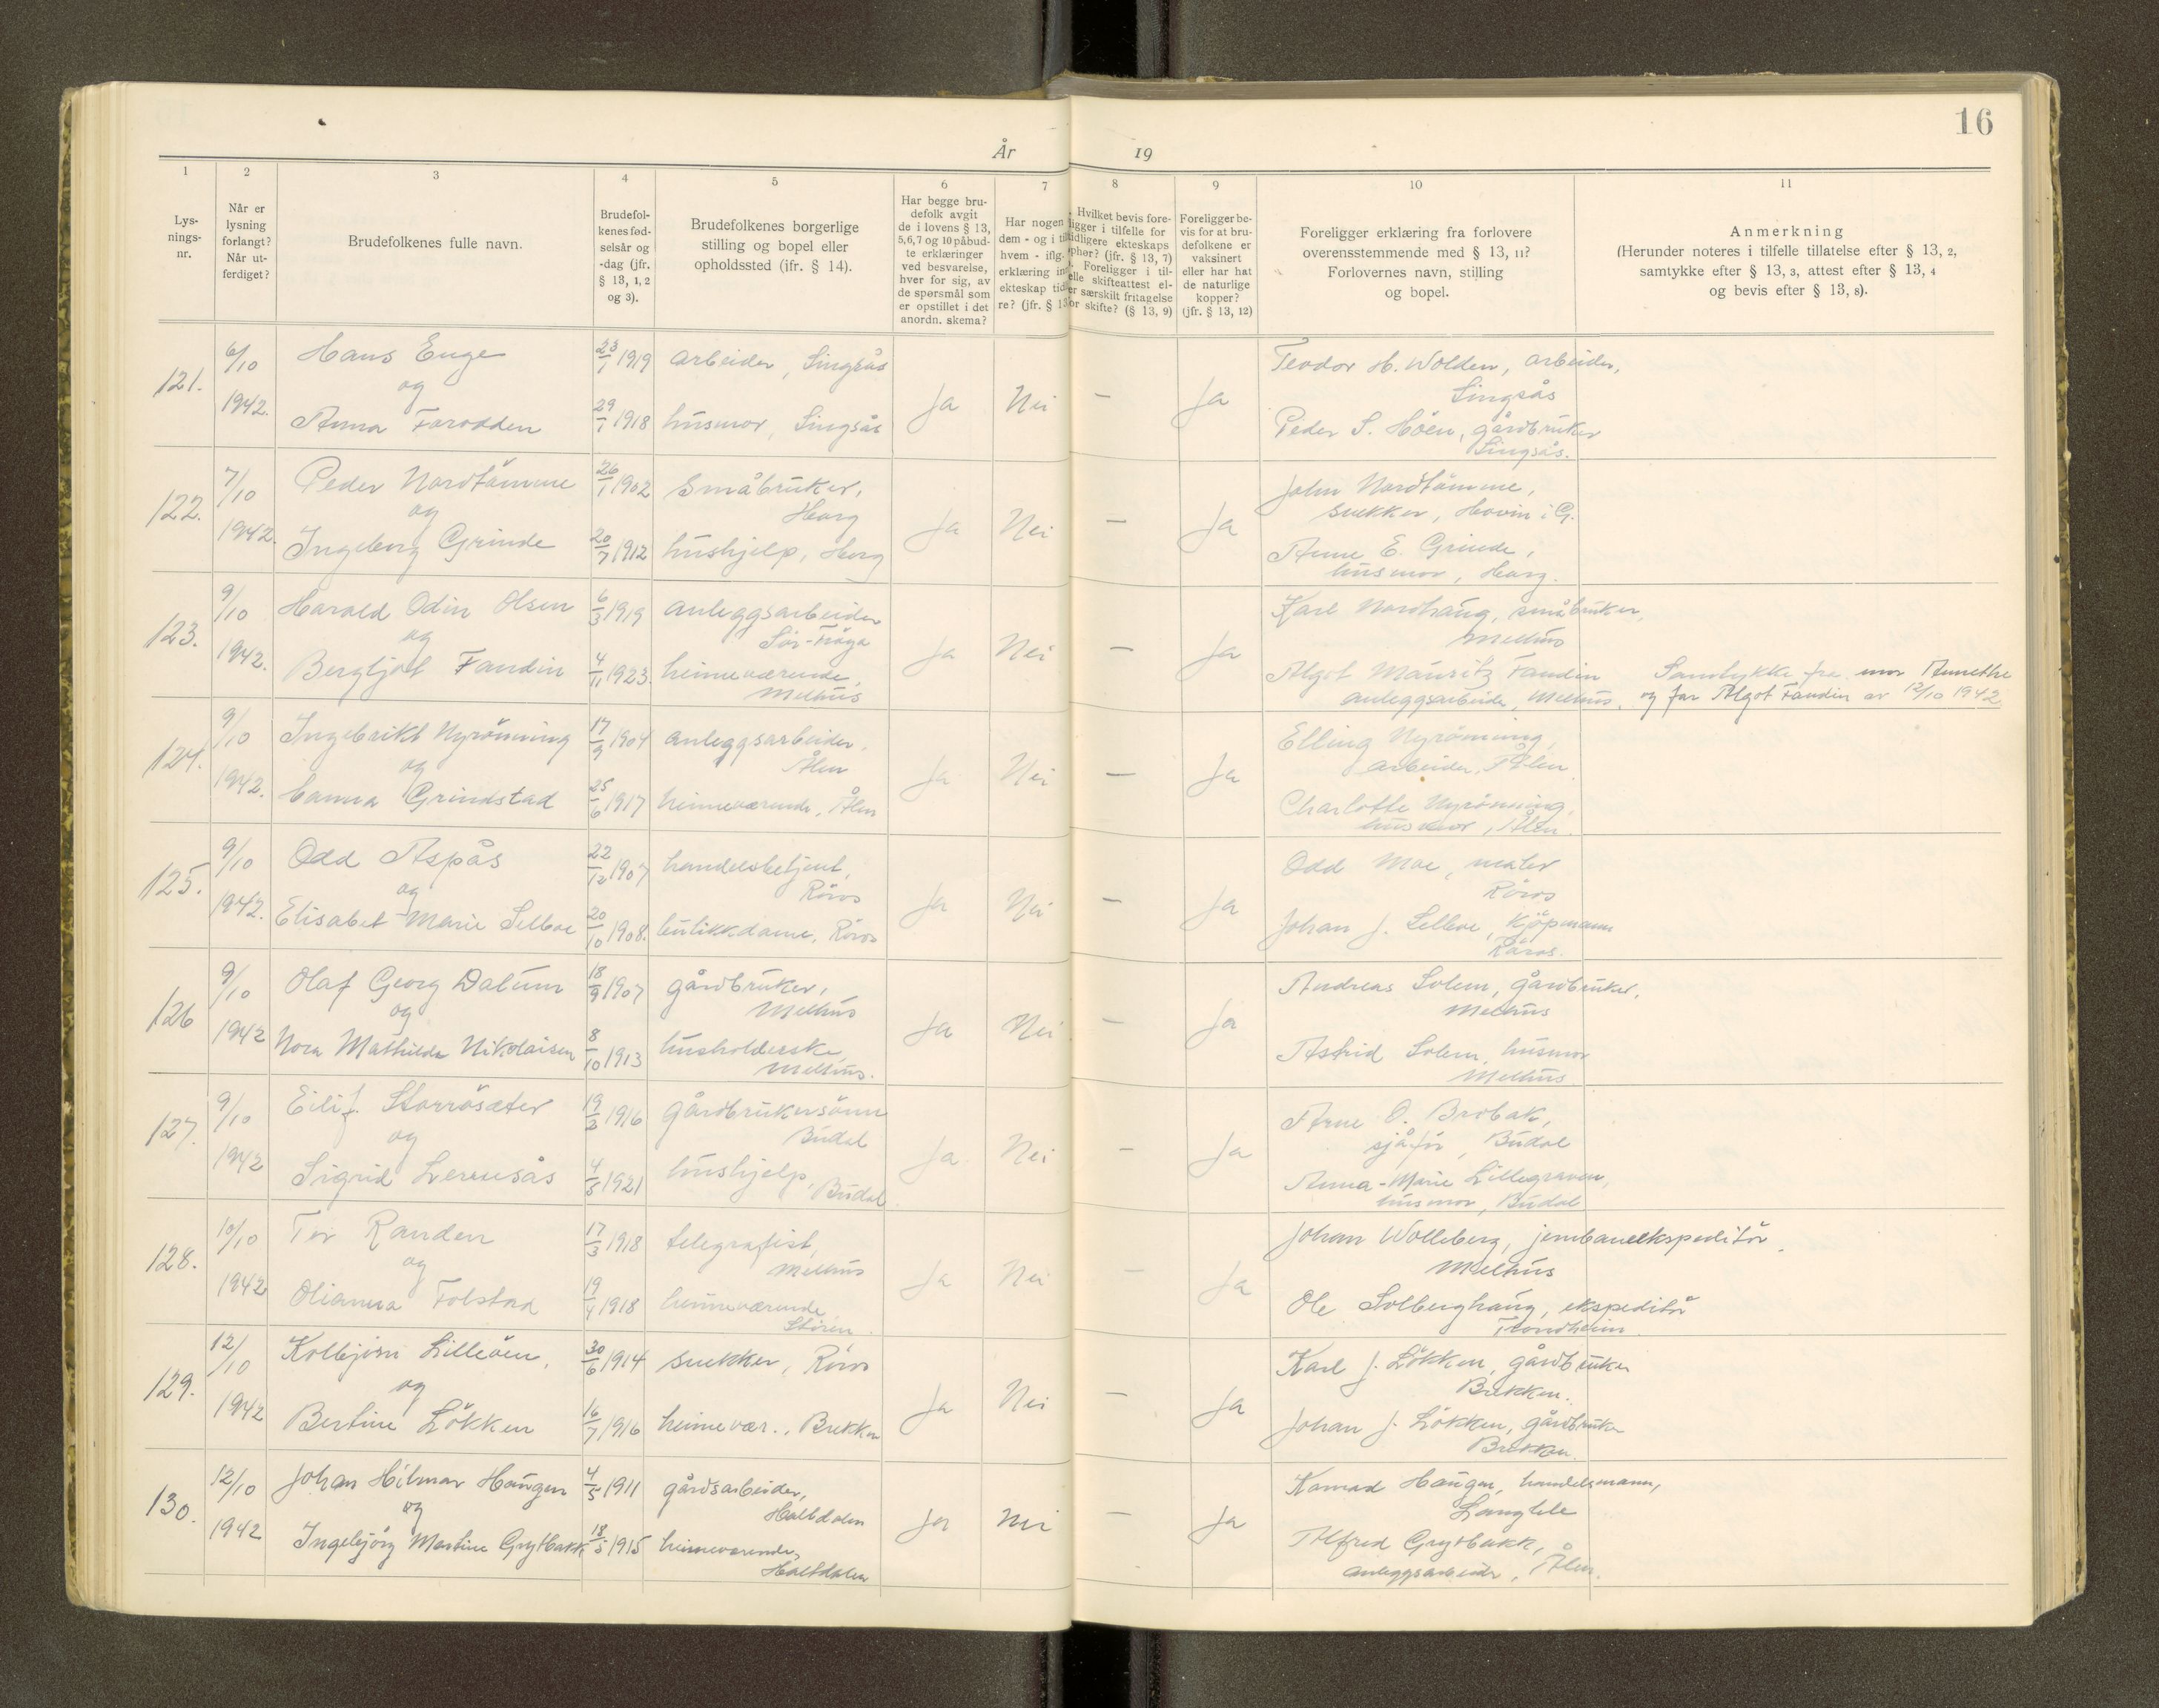 16
År 19
1
2
3
4
5
6
7
8
9
10
11
Lys-
nings-
nr.
Når er
lysning
forlangt?
Når ut-
ferdiget?
Brudefolkenes fulle navn.
Brudefol-
kenes fød-
selsår og
-dag (jfr.
§ 13, 1, 2
og 3).
Brudefolkenes borgerlige
stilling og bopel eller
opholdssted (ifr. § 14).
Har begge bru-
defolk avgit
de i lovens § 13,
5,6,7 og 10 påbud-
te erklæringer
ved besvarelse,
hver for sig, av
de spørsmål som
er opstillet i det
anordn. skema?
Har nogen
dem - og i til
hvem - iflg.
erklæring in
ekteskap tid
re? (jfr. § 13
Hvilket bevis fore-
ligger i tilfelle for
tidligere ekteskaps
ophør? (jfr. § 13, 7)
Foreligger i til-
elle skifteattest el-
er særskilt fritagelse
for skifte? (§ 13, 9)
Foreligger be-
vis for at bru-
defolkene er
vaksinert
eller har hat
de naturlige
kopper?
(jfr. § 13, 12)
Foreligger erklæring fra forlovere
overensstemmende med § 13, 11?
Forlovernes navn, stilling
og bopel.
Anmerkning
(Herunder noteres i tilfelle tillatelse efter § 13, 2,
samtykke efter § 13, 3, attest efter § 13, 4
og bevis efter § 13, 8).
121. 6/10 1942.
Hans Enge 23/1 1919 arbeider, Singsås
og
Anna Forodden 29/1 1918 husmor, Singsås
Ja Nei — Ja
Teodor H. Wolden, arbeider,
Singsås
Peder S. Höen, gårdbruker
Singsås.
122. 7/10 1942.
Peder Nordtömme 26/1 1902 Småbruker,
Horg
og
Ingeborg Grinde 20/7 1912 hushjelp, Horg
Ja Nei — Ja
John Nordtömme,
snekker, Hovin i G.
Anne E. Grinde,
husmor, Horg.
123. 9/10 1942.
Harald Odin Olsen 6/3 1919 anleggsarbeider
Sör-Fröya
og
Bergljot Fandin 4/11 1923. heimeværende,
Melhus
Ja Nei — Ja
Karl Nordhaug, småbruker,
Melhus
Algot Mauritz Fandin
anleggsarbeider, Melhus.
Samtykke fra mor Annethe
og far Algot Fandin av 12/10 1942
124. 9/10 1942.
Ingebrikt Nyrönning 17/9 1904 anleggsarbeider,
Ålen
og
Hanna Grindstad 25/6 1917 heimeværende, Ålen
Ja Nei — Ja
Elling Nyrönning,
arbeider, Ålen
Charlotte Nyrönning,
husmor, Ålen.
125. 9/10 1942.
Odd Aspås 22/12 1907 handelsbetjent,
Röros
og
Elisabet Marie Selboe 20/10 1908. butikkdame, Röros
Ja Nei — Ja
Odd Moe, maler
Röros
Johan J. Selboe, Kjöpmann
Röros.
126 9/10 1942
Olaf Georg Dalum 18/9 1907 gårdbruker,
Melhus
og
Nora Mathilde Nikolaisen 8/10 1913 husholderske,
Melhus.
Ja Nei — Ja
Andreas Solem, gårdbruker,
Melhus
Astrid Solem, husmor
Melhus.
127. 9/10 1942
Eilif Storrösæter 19/3 1916 Gårdbrukersönn
Budal
og
Sigrid Lerusås 4/8 1921 hushjelp, Budal
Ja Nei — Ja
Arne O. Brobak,
sjåför, Budal
Anna-Marie Lillegraven,
husmor, Budal
128. 10/10 1942
Tor Randen 17/3 1918 telegrafist,
Melhus
og
Olianna Folstad 19/4 1918 heimeværende
Stören.
Ja Nei — Ja
Johan Wolleberg, jernbaneekspeditör.
Melhus
Ole Solberghaug, ekspeditör
Trondheim.
129. 12/10 1942
Kolbjörn Lilleöen, 30/6 1914 snekker, Röros
og
Bertine Lökken 16/7 1916 heimevær., Brekken
Ja Nei — Ja
Karl J. Lökken, gårdbruker
Brekken.
Johan J. Lökken, gårdbruker
Brekken.
130. 12/10 1942
Johan Hilmar Haugen 4/5 1911 gårdsarbeider,
Haltdalen
og
Ingebjörg Martine Grytbakk 18/5 1915 heimeværende,
Haltdalen
Ja Nei — Ja
Konrad Haugen, handelsmann,
Langlete
Alfred Grytbakk,
anleggsarbeider, Ålen.